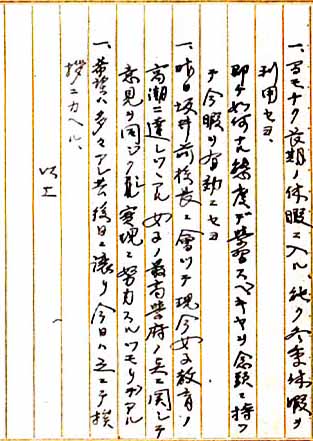 一、間モナク長期ノ休暇ニ入ル、純ク冬季休暇ヲ
利用セヨ、
即チ如何ナル態度デ学習スベキヤヲ念頭ニ持ツ
テ今暇ヲ有効ニセヨ
一、昨日坂井前校長ニ會ツテ現今女子教育ノ
高潮ニ達シツヽアル女子ノ最高学府ノ点ニ関シテ
意見ヲ同ジクシ実現ニ努力スルツモリデアル
一、希望ハ多々アレ共後日ニ譲リ今日ハ之ニテ挨
拶ニカヘル、
以上